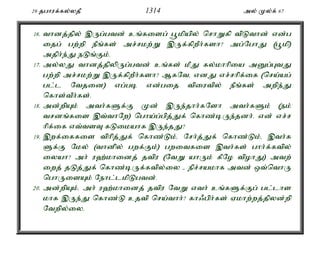 29 தபாரக்கல்லதீ 1314 அல் முல்க் 67
16. வானத்தில் இருப்பவன் உங்களைப் பூமியில் சொறுகி விடுவான் என்ப
தைப் பற்றி நீங்கள் அச்சமற்று இருக்கிறீர்களா? அப்போது (பூமி)
அதிர்ந்து நடுங்கும்.
17. அல்லது வானத்திலிருப்பவன் உங்கள் மீது கல்மாரியை அனுப்புவது
பற்றி அச்சமற்று இருக்கிறீர்களா? ஆகவே, எனது எச்சரிக்கை (செய்யப்
பட்ட வேதனை) எப்படி என்பதை விரைவில் நீங்கள் அறிந்து
கொள்வீர்கள்.
18. அன்றியும் அவர்களுக்கு முன் இருந்தார்களே அவர்களும் (நம்
வசனங்களை இவ்வாறே) பொய்ப்பித்துக் கொண்டிருந்தனர். என் எச்ச
ரிக்கை எவ்வளவு கடுமையாக இருந்தது?
19. இறக்கைகளை விரித்துக் கொண்டும், சேர்த்துக் கொண்டும், இவர்க
ளுக்கு மேல் (வானில் பறக்கும்) பறவைகளை இவர்கள் பார்க்கவில்
லையா? அர் ரஹ்மானைத் தவிர (வேறு யாரும் கீழே விழாது) அவற்
றைத் தடுத்துக் கொண்டிருக்கவில்லை , நிச்சயமாக அவன் ஒவ்வொரு
பொருளையும் நோட்டமிடுபவன்.
20. அன்றியும், அர் ரஹ்மானைத் தவிர வேறு எவர் உங்களுக்குப் பட்டாள
மாக இருந்து கொண்டு உதவி செய்வார்? காஃபிர்கள் ஏமாற்றத்திலன்றி
வேறில்லை.